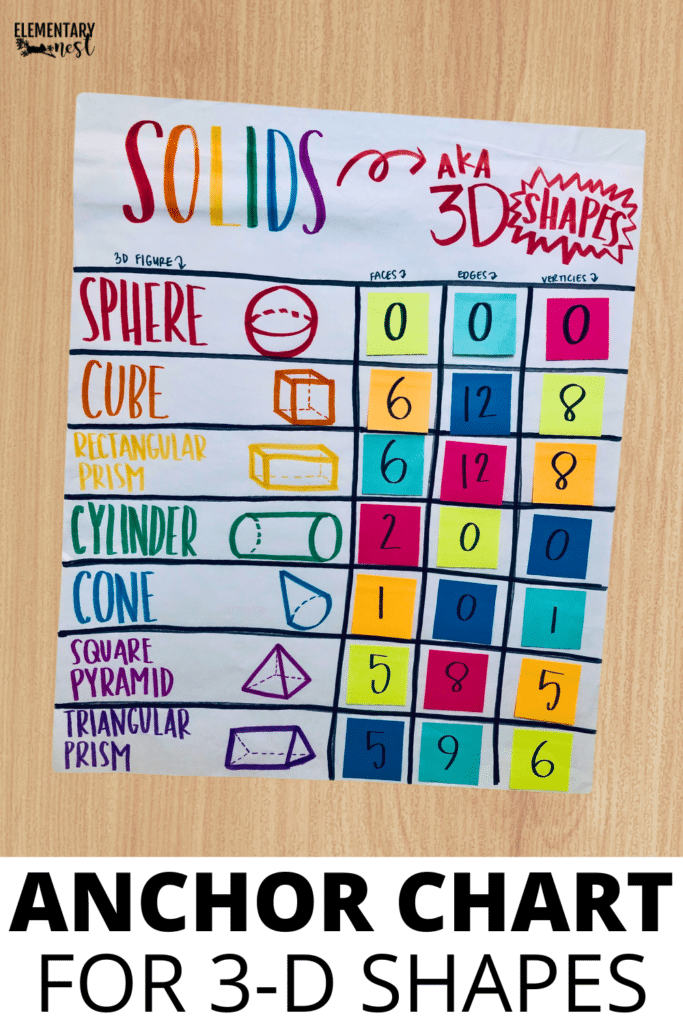 ELEMENTARY
nest
SOLIDS AKA
3D SHAPES
3D FIGURE FACES EDGES VERTICIES
SPHERE 0 0 0
CUBE 6 12 8
RECTANGULAR
PRISM 6 12 8
CYLINDER 2 0 0
CONE 1 0 1
SQUARE
PYRAMID 5 8 5
TRIANGULAR
PRISM 5 9 6
ANCHOR CHART
FOR 3-D SHAPES